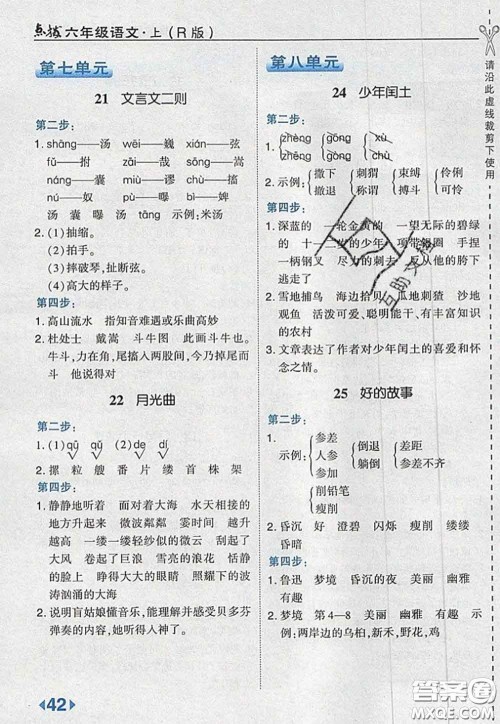 点拨 六年级语文·上(R版)
第七单元
21 文言文二则
第二步:
1. shāng——汤 wēi——巍 xián——弦
fǔ——拊 zāi——哉 yí——矣
náng——囊 miù——谬 chù——搐
nóng——哝 pù——曝
汤 囊 曝 汤 tāng 示例:米汤
2. (1)抽缩。
(2)拍手。
(3)摔破琴,扯断弦。
(4)摆动尾巴。
第四步:
1. 高山流水 指知音难遇或乐曲高妙
2. 杜处士 戴嵩 斗牛图 此画斗牛也。
牛斗,力在角,尾搐入两股间,今乃掉尾而
斗 他说得对
22 月光曲
第二步:
1. (1)qǔ qū (2)de dé
2. 摞 粒 艘 番 片 缕 首 株 架
第四步:
1. 静静地听着 面对着大海 水天相接的
地方升起来 微波粼粼 霎时间 越升
越高 一缕一缕轻纱似的微云 刮起了
大风 卷起了巨浪 雪亮的浪花 恬静
的脸上 睁得大大的眼睛 照耀下的波
涛汹涌的大海
2. 说明盲姑娘懂音乐,能理解并感受贝多芬
弹奏的内容,她听得入神。
第八单元
24 少年闰土
第二步:
1. zhèng gōng xù
zhēng gǒng chù
2. 示例: 撒下 刺猬 束缚 伶俐
撤退 称谓 搏斗 可怜
第四步:
1. 深蓝的 一轮金黄的 一望无际的碧绿
的 十一二岁的少年 项带银圈 手捏
一柄钢叉 尽力的刺去 反从他的胯下
逃走了
2. 雪地捕鸟 海边拾贝 瓜地刺猹 沙地
观鱼 活泼可爱、聪明能干、有丰富知识
的农村
3. 文章表达了作者对少年闰土的喜爱和怀
念之情。
25 好的故事
第二步:
1. 示例: 参差 倒退 差距
人参 躺倒 参差不齐
参加
削铅笔
瘦削
2. 昏沉 好 澄碧 闪烁 瘦削 缕缕
昏暗
第四步:
1. 鲁迅 梦境 昏沉的夜 美丽 幽雅
有趣
2. 梦境 第4—8 美丽 幽雅 有趣 示
例:两岸边的乌桕,新禾,野花,鸡
请沿此虚线裁剪下使用
42
答案圈
MXQE.COM